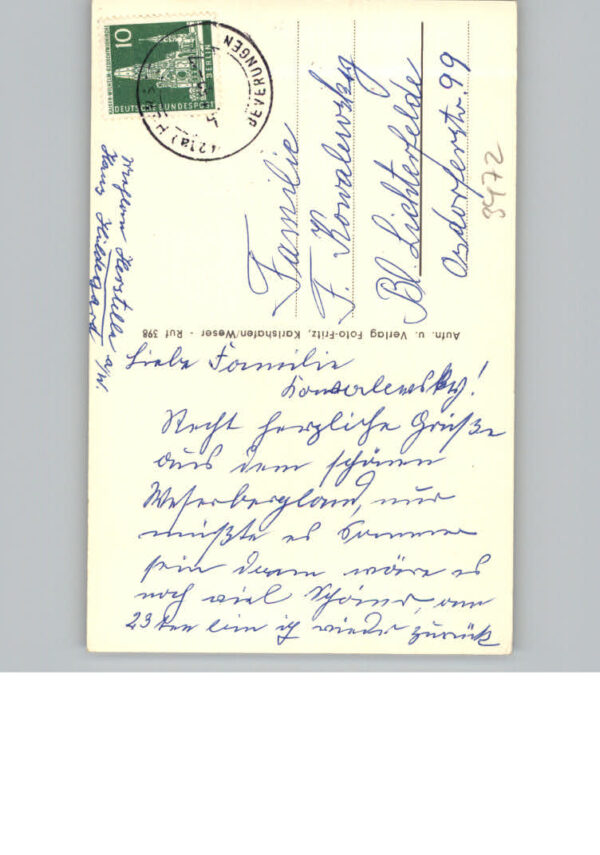 10
DEUTSCHE BUNDESPOST
BERLIN
BEVERUNGEN
(21a)
Familie
F. Kowalewsky
Bl. Lichterfelde
Osdorferstr. 99
3472
Herstelle a/W.
Haus Hildegard
Aufn. u. Verlag Foto-Fritz, Karlshafen/Weser - Ruf 398
Liebe Familie
Kowalewsky!
Recht herzliche Grüße
aus dem schönen
Weserbergland, nur
müßte es Sommer
sein dann wäre es
noch viel schöner, am
23ten bin ich wieder zurück